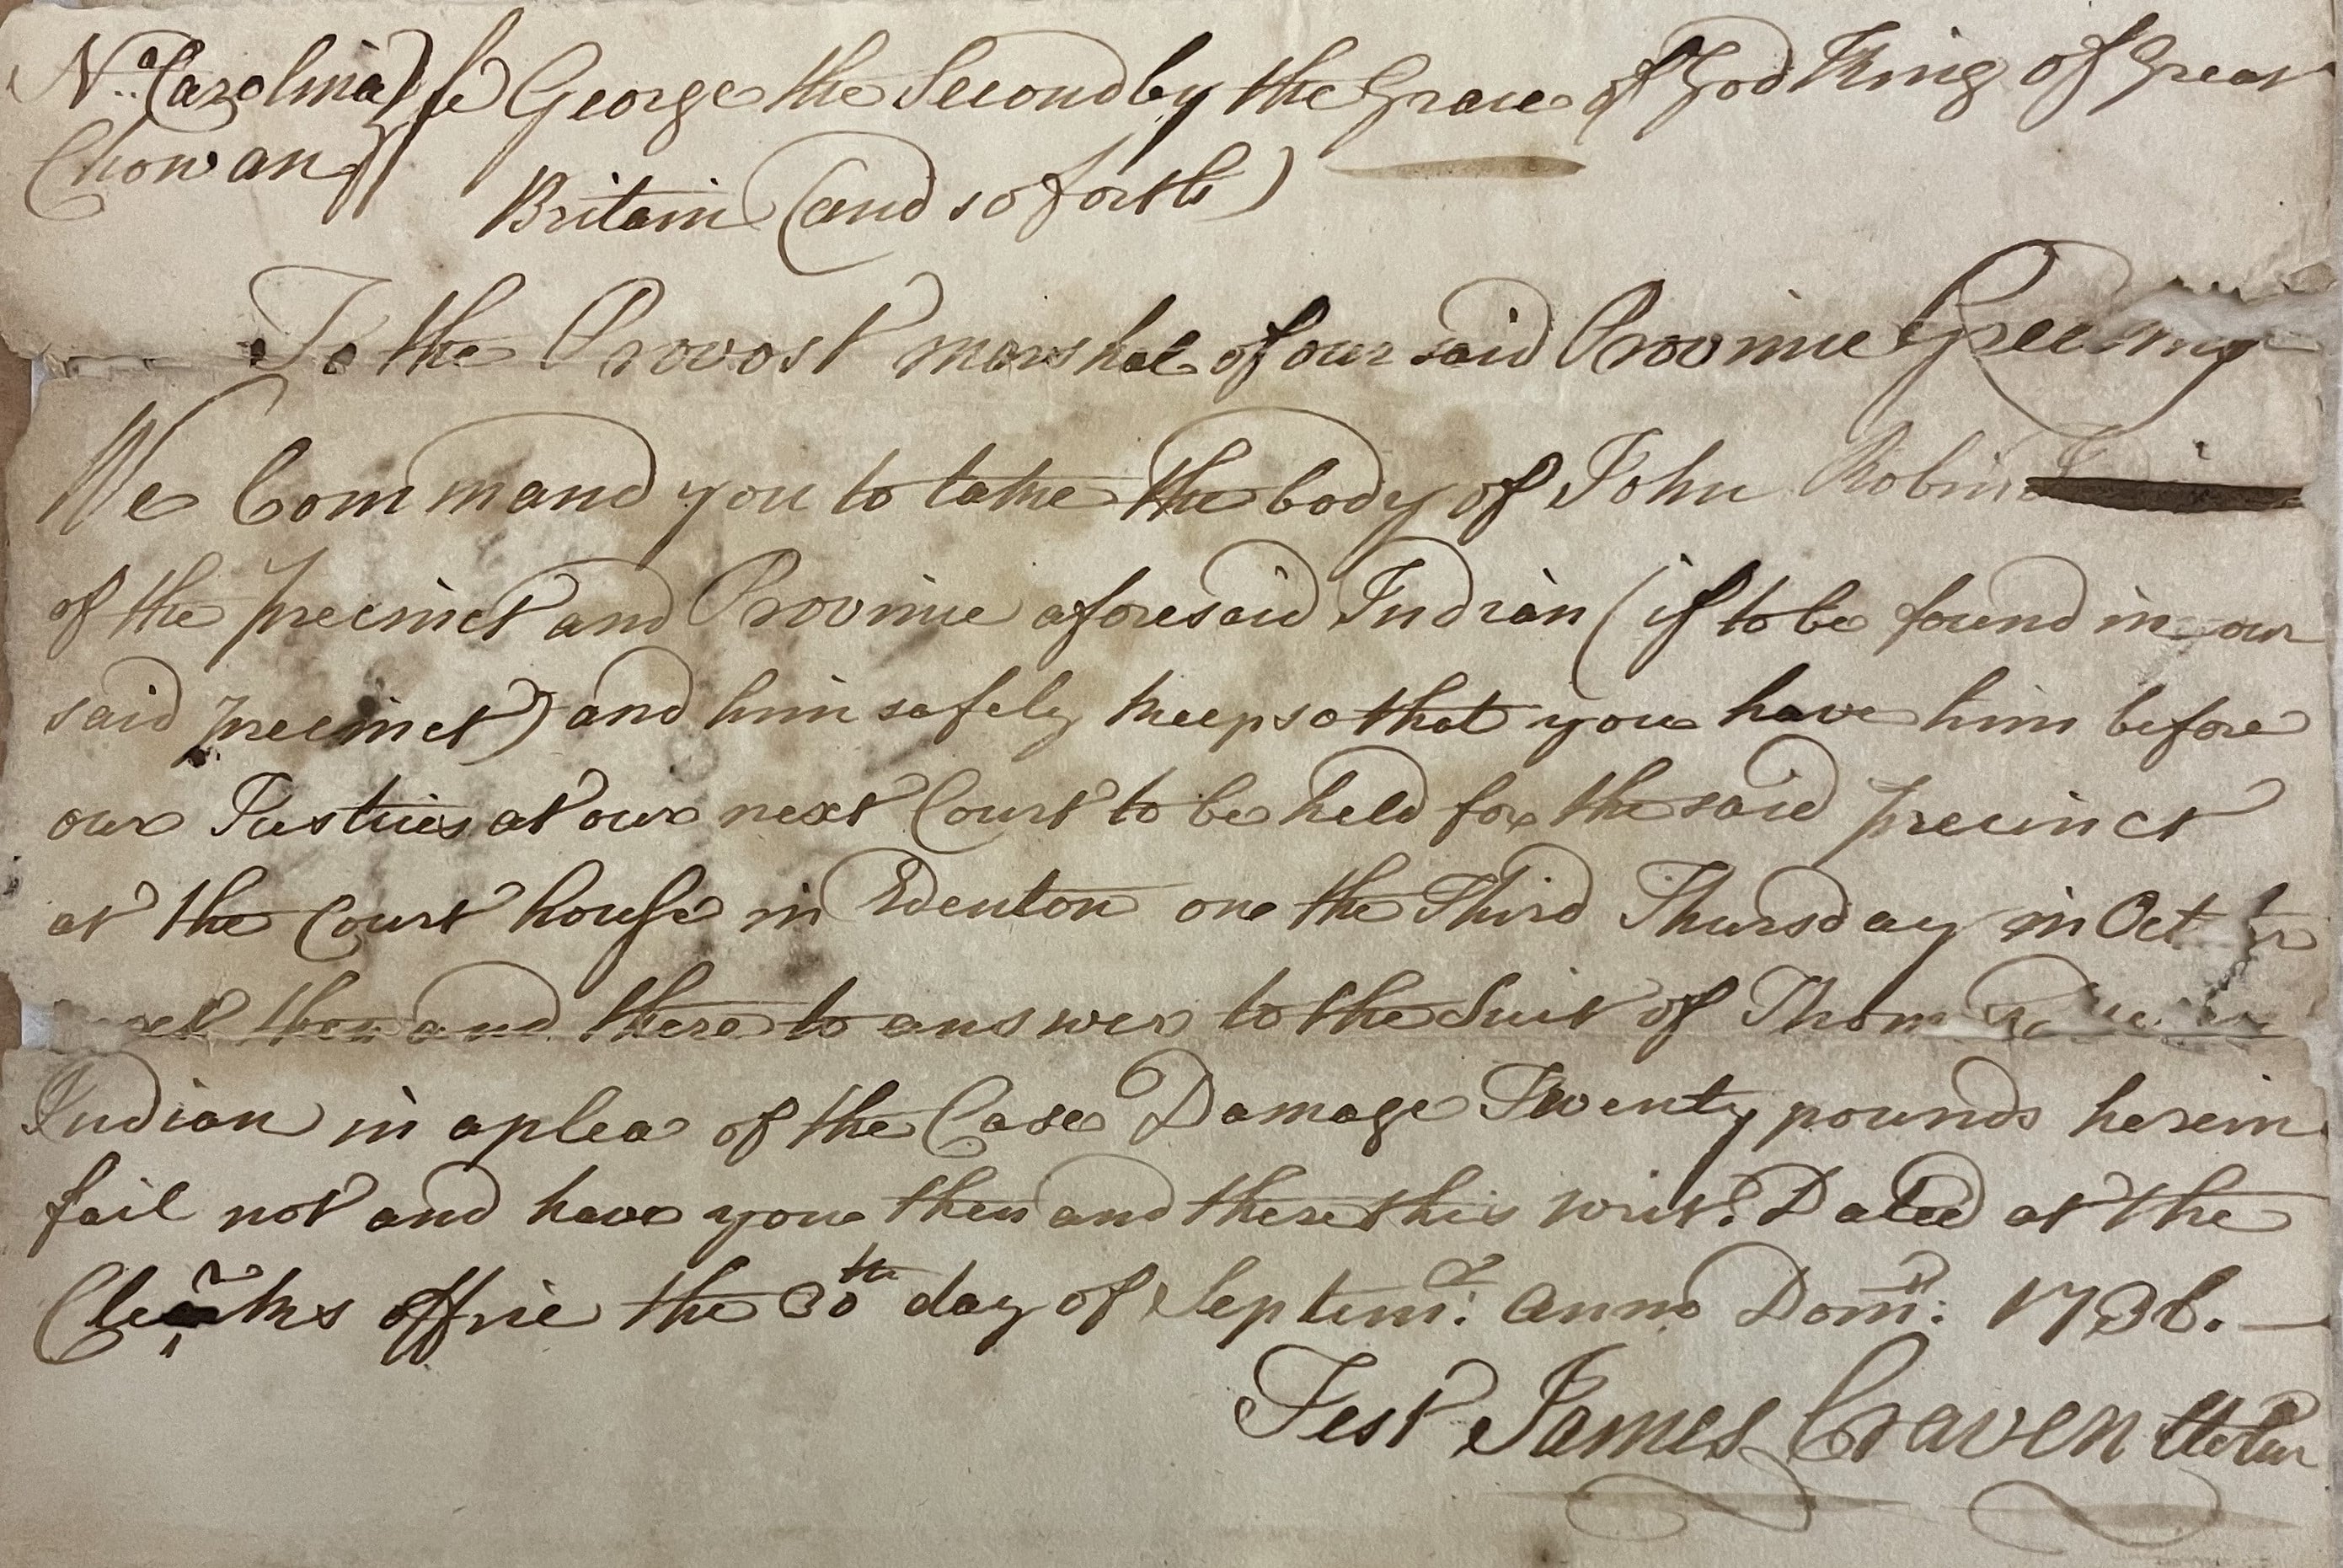 No. Carolina) sc) George the Second by the Grace of God King of Great
Chowan
Britain (and so forth)
To the Provost marshal of our said Province Greeting
We Command you to take the body of John Robins
of the precinct and Province aforesaid Indian (if to be found in our
said precinct) and him safely keep so that you have him before
our Justices at our next Court to be held for the said precinct
at the Court house in Edenton on the Third Thursday in Oct
then and there to answer to the Suit of Thom
Indian in a plea of the Case Damage Twenty pounds herein
fail not and have you then and there this writ. Dated at the
Clerks office the 30th day of Septemr: Anno Domi: 1736.
Test James Craven